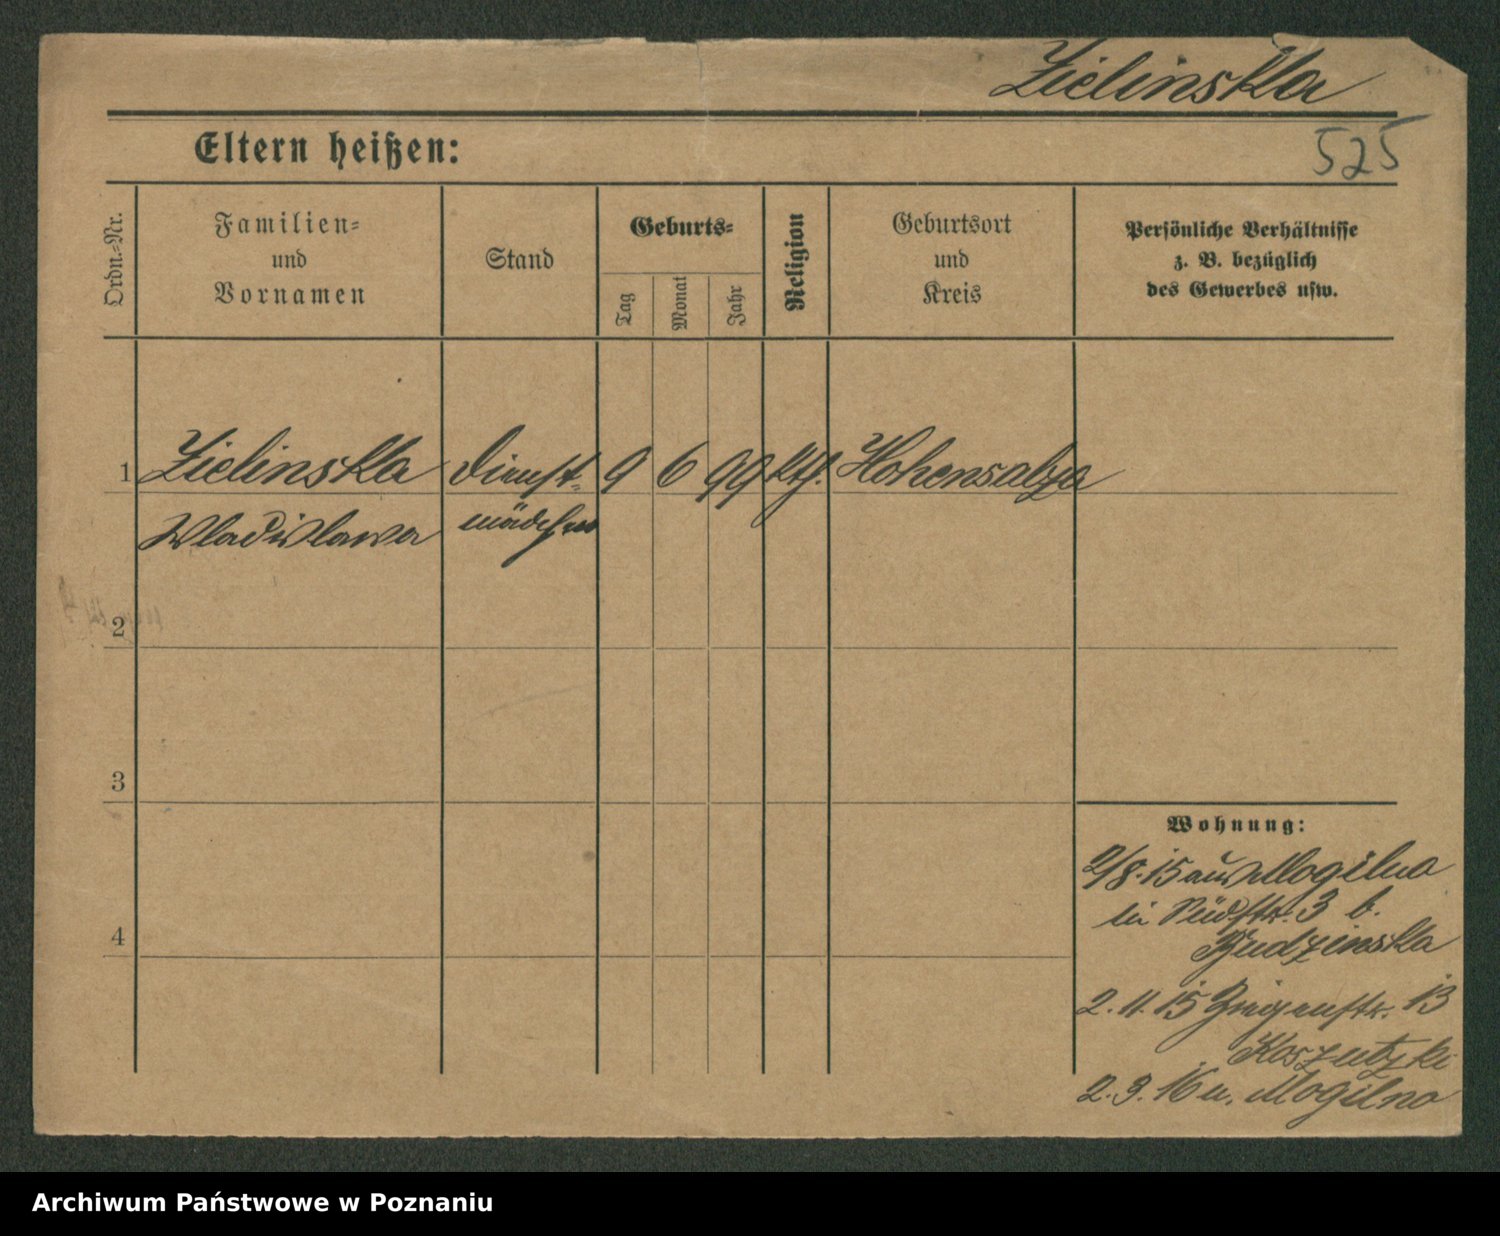 Zielinska
525
Eltern heißen:
Ordn.=Nr.
Familien=
und
Vornamen
Stand
Geburts=
Tag
Monat
Jahr
Religion
Geburtsort
und
Kreis
Persönliche Verhältnisse
z. B. bezüglich
des Gewerbes usw.
1 Zielinska Dienst= 9 6 99 kth. Hohensalza
Wladislawa mädchen
2
3
4
Wohnung:
2/8.15 aus Mogilno
3 b.
Budzinska
2.11.15 Ziegenstr. 13
Koszutzki
2.3.16 n. Mogilno
Archiwum Państwowe w Poznaniu